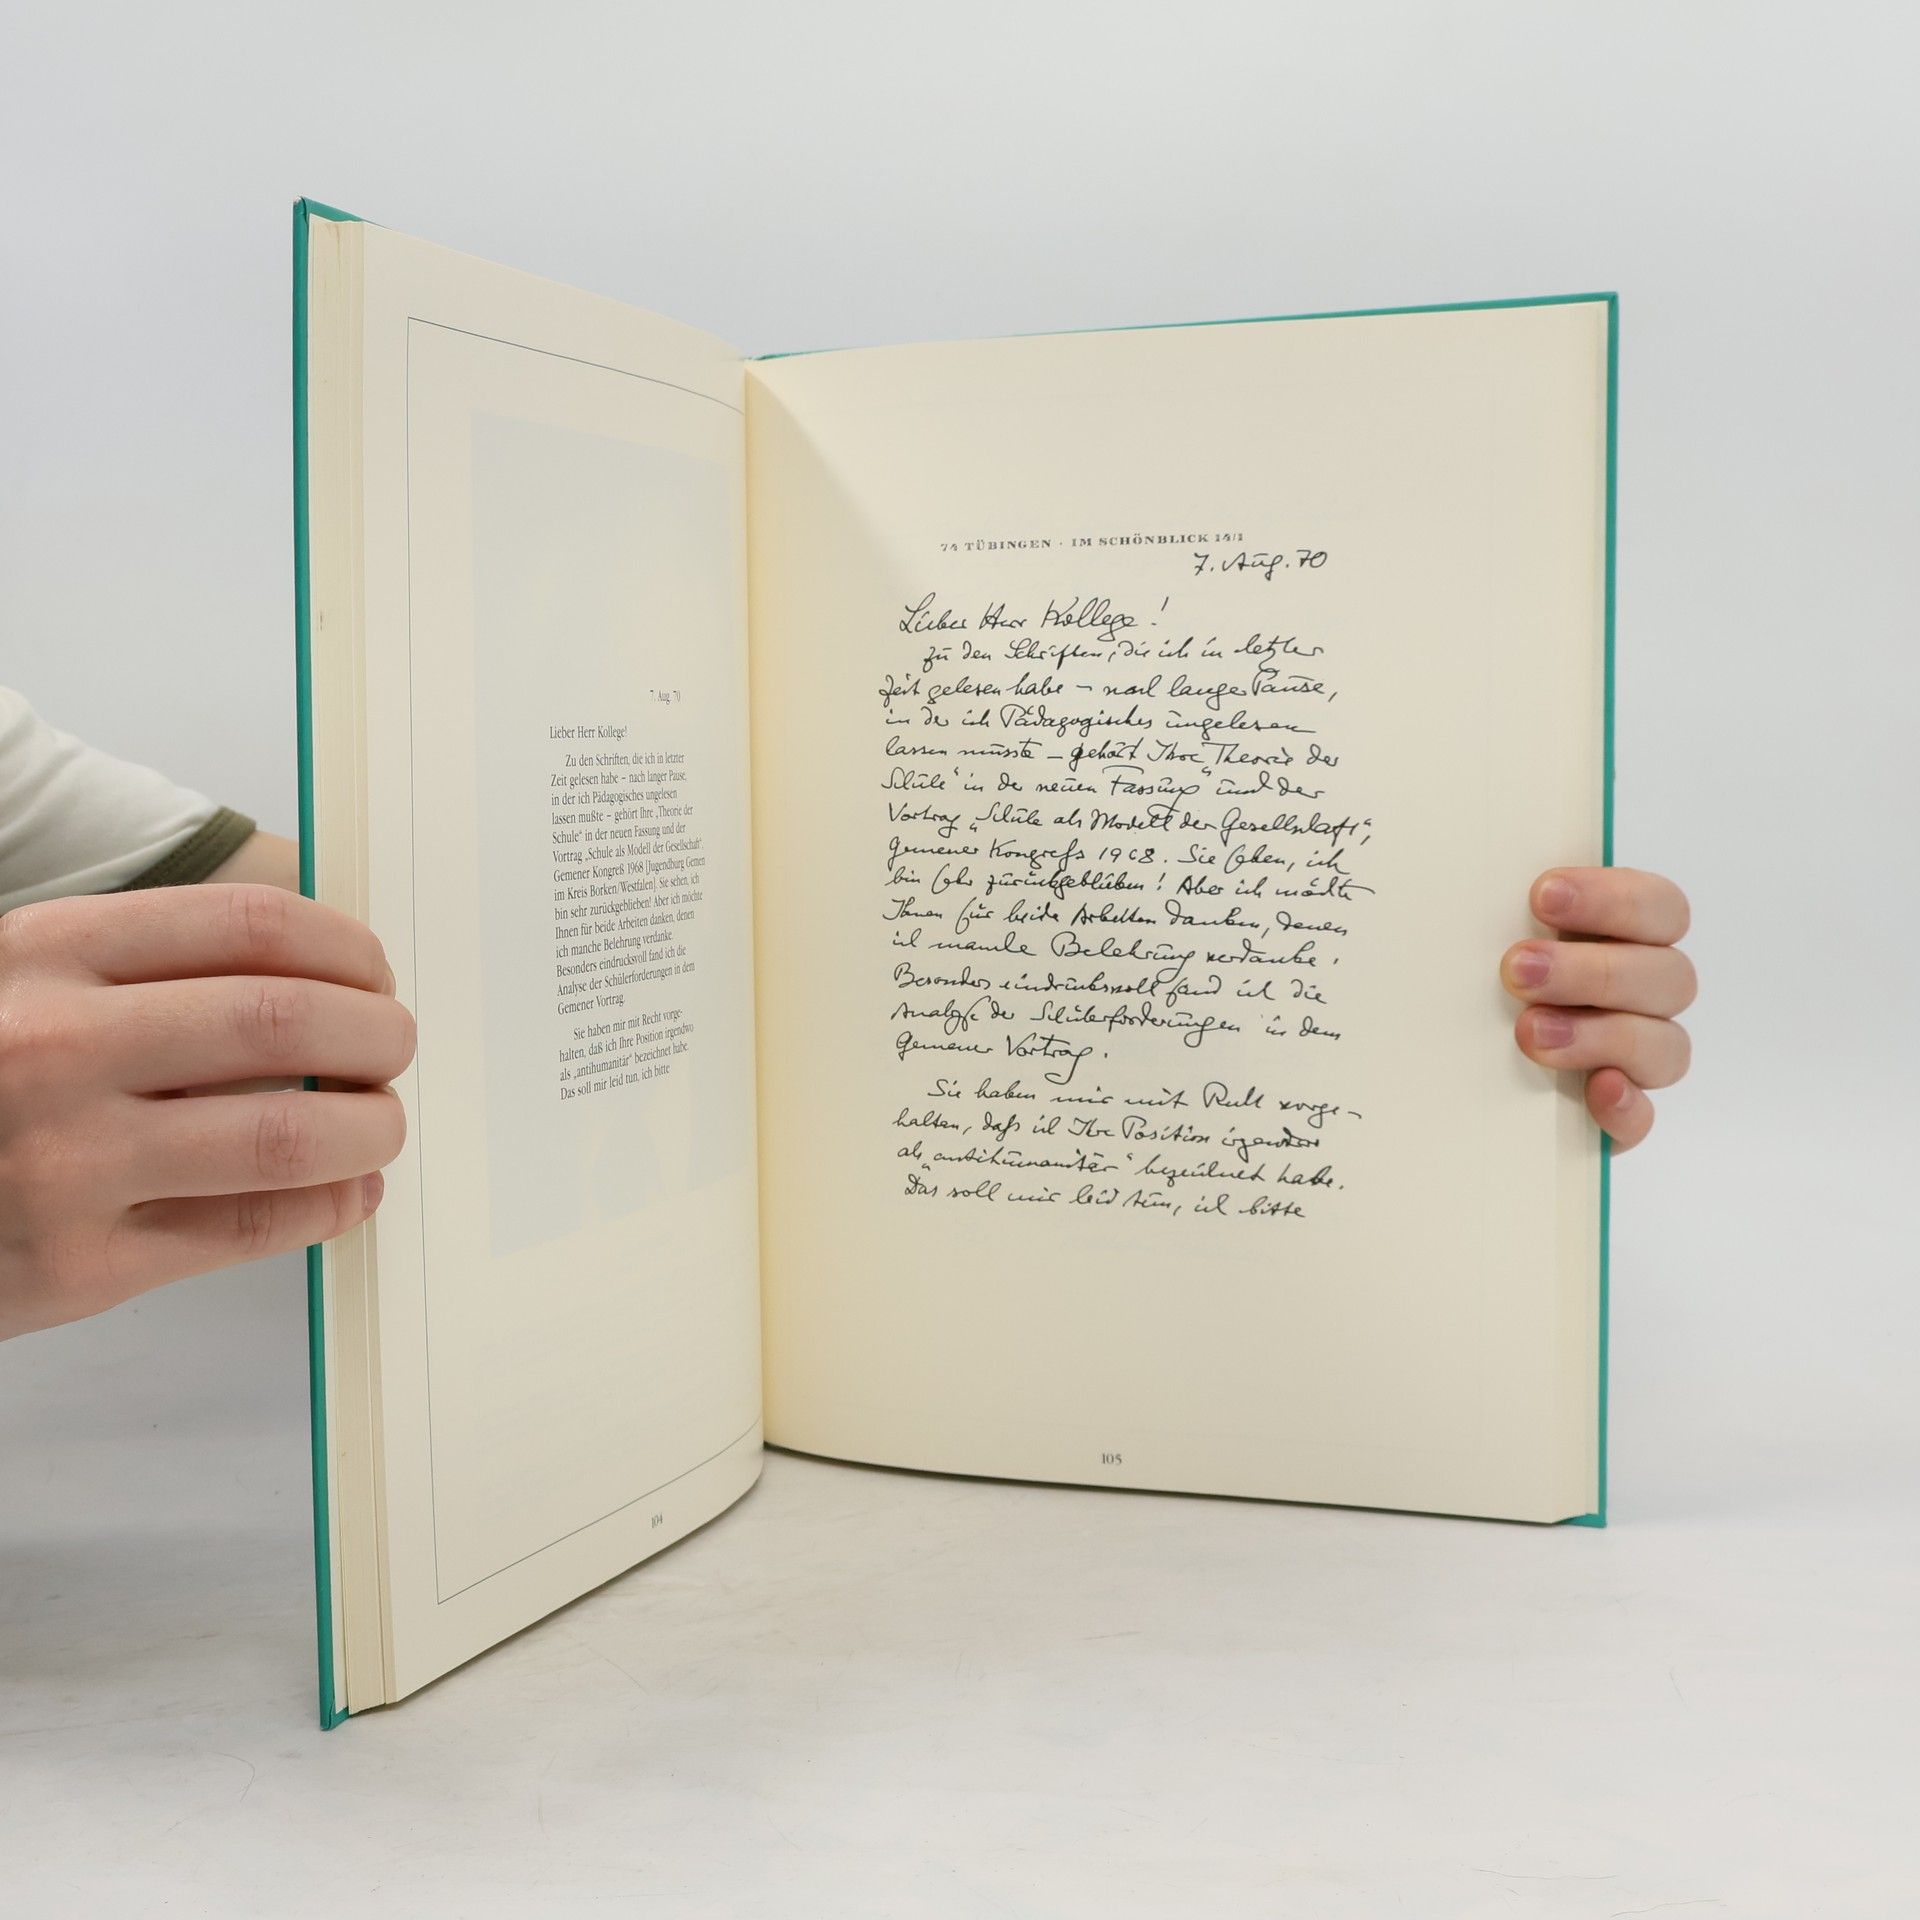 7. Aug. 70
Lieber Herr Kollege!
Zu den Schriften, die ich in letzter
Zeit gelesen habe – nach langer Pause,
in der ich Pädagogisches ungelesen
lassen mußte – gehört Ihre „Theorie der
Schule“ in der neuen Fassung und der
Vortrag „Schule als Modell der Gesellschaft“,
Gemener Kongreß 1968 [Jugendburg Gemen
im Kreis Borken/Westfalen]. Sie sehen, ich
bin sehr zurückgeblieben! Aber ich möchte
Ihnen für beide Arbeiten danken, denen
ich manche Belehrung verdanke.
Besonders eindrucksvoll fand ich die
Analyse der Schülerforderungen in dem
Gemener Vortrag.
Sie haben mir mit Recht vorge-
halten, daß ich Ihre Position irgendwo
als „antihumanitär“ bezeichnet habe.
Das soll mir leid tun, ich bitte
104
74 TÜBINGEN · IM SCHÖNBLICK 14/1
7. Aug. 70
Lieber Herr Kollege!
zu den Schriften, die ich in letzter
Zeit gelesen habe – nach langer Pause,
in der ich Pädagogisches ungelesen
lassen musste – gehört Ihre „Theorie der
Schule“ in der neuen Fassung und der
Vortrag „Schule als Modell der Gesellschaft“,
Gemener Kongreß 1968. Sie sehen, ich
bin sehr zurückgeblieben! Aber ich möchte
Ihnen für beide Arbeiten danken, denen
ich manche Belehrung verdanke.
Besonders eindrucksvoll fand ich die
Analyse der Schülerforderungen in dem
Gemener Vortrag.
Sie haben mir mit Recht vorge-
halten, daß ich Ihre Position irgendwo
als „antihumanitär“ bezeichnet habe.
Das soll mir leid tun, ich bitte
105